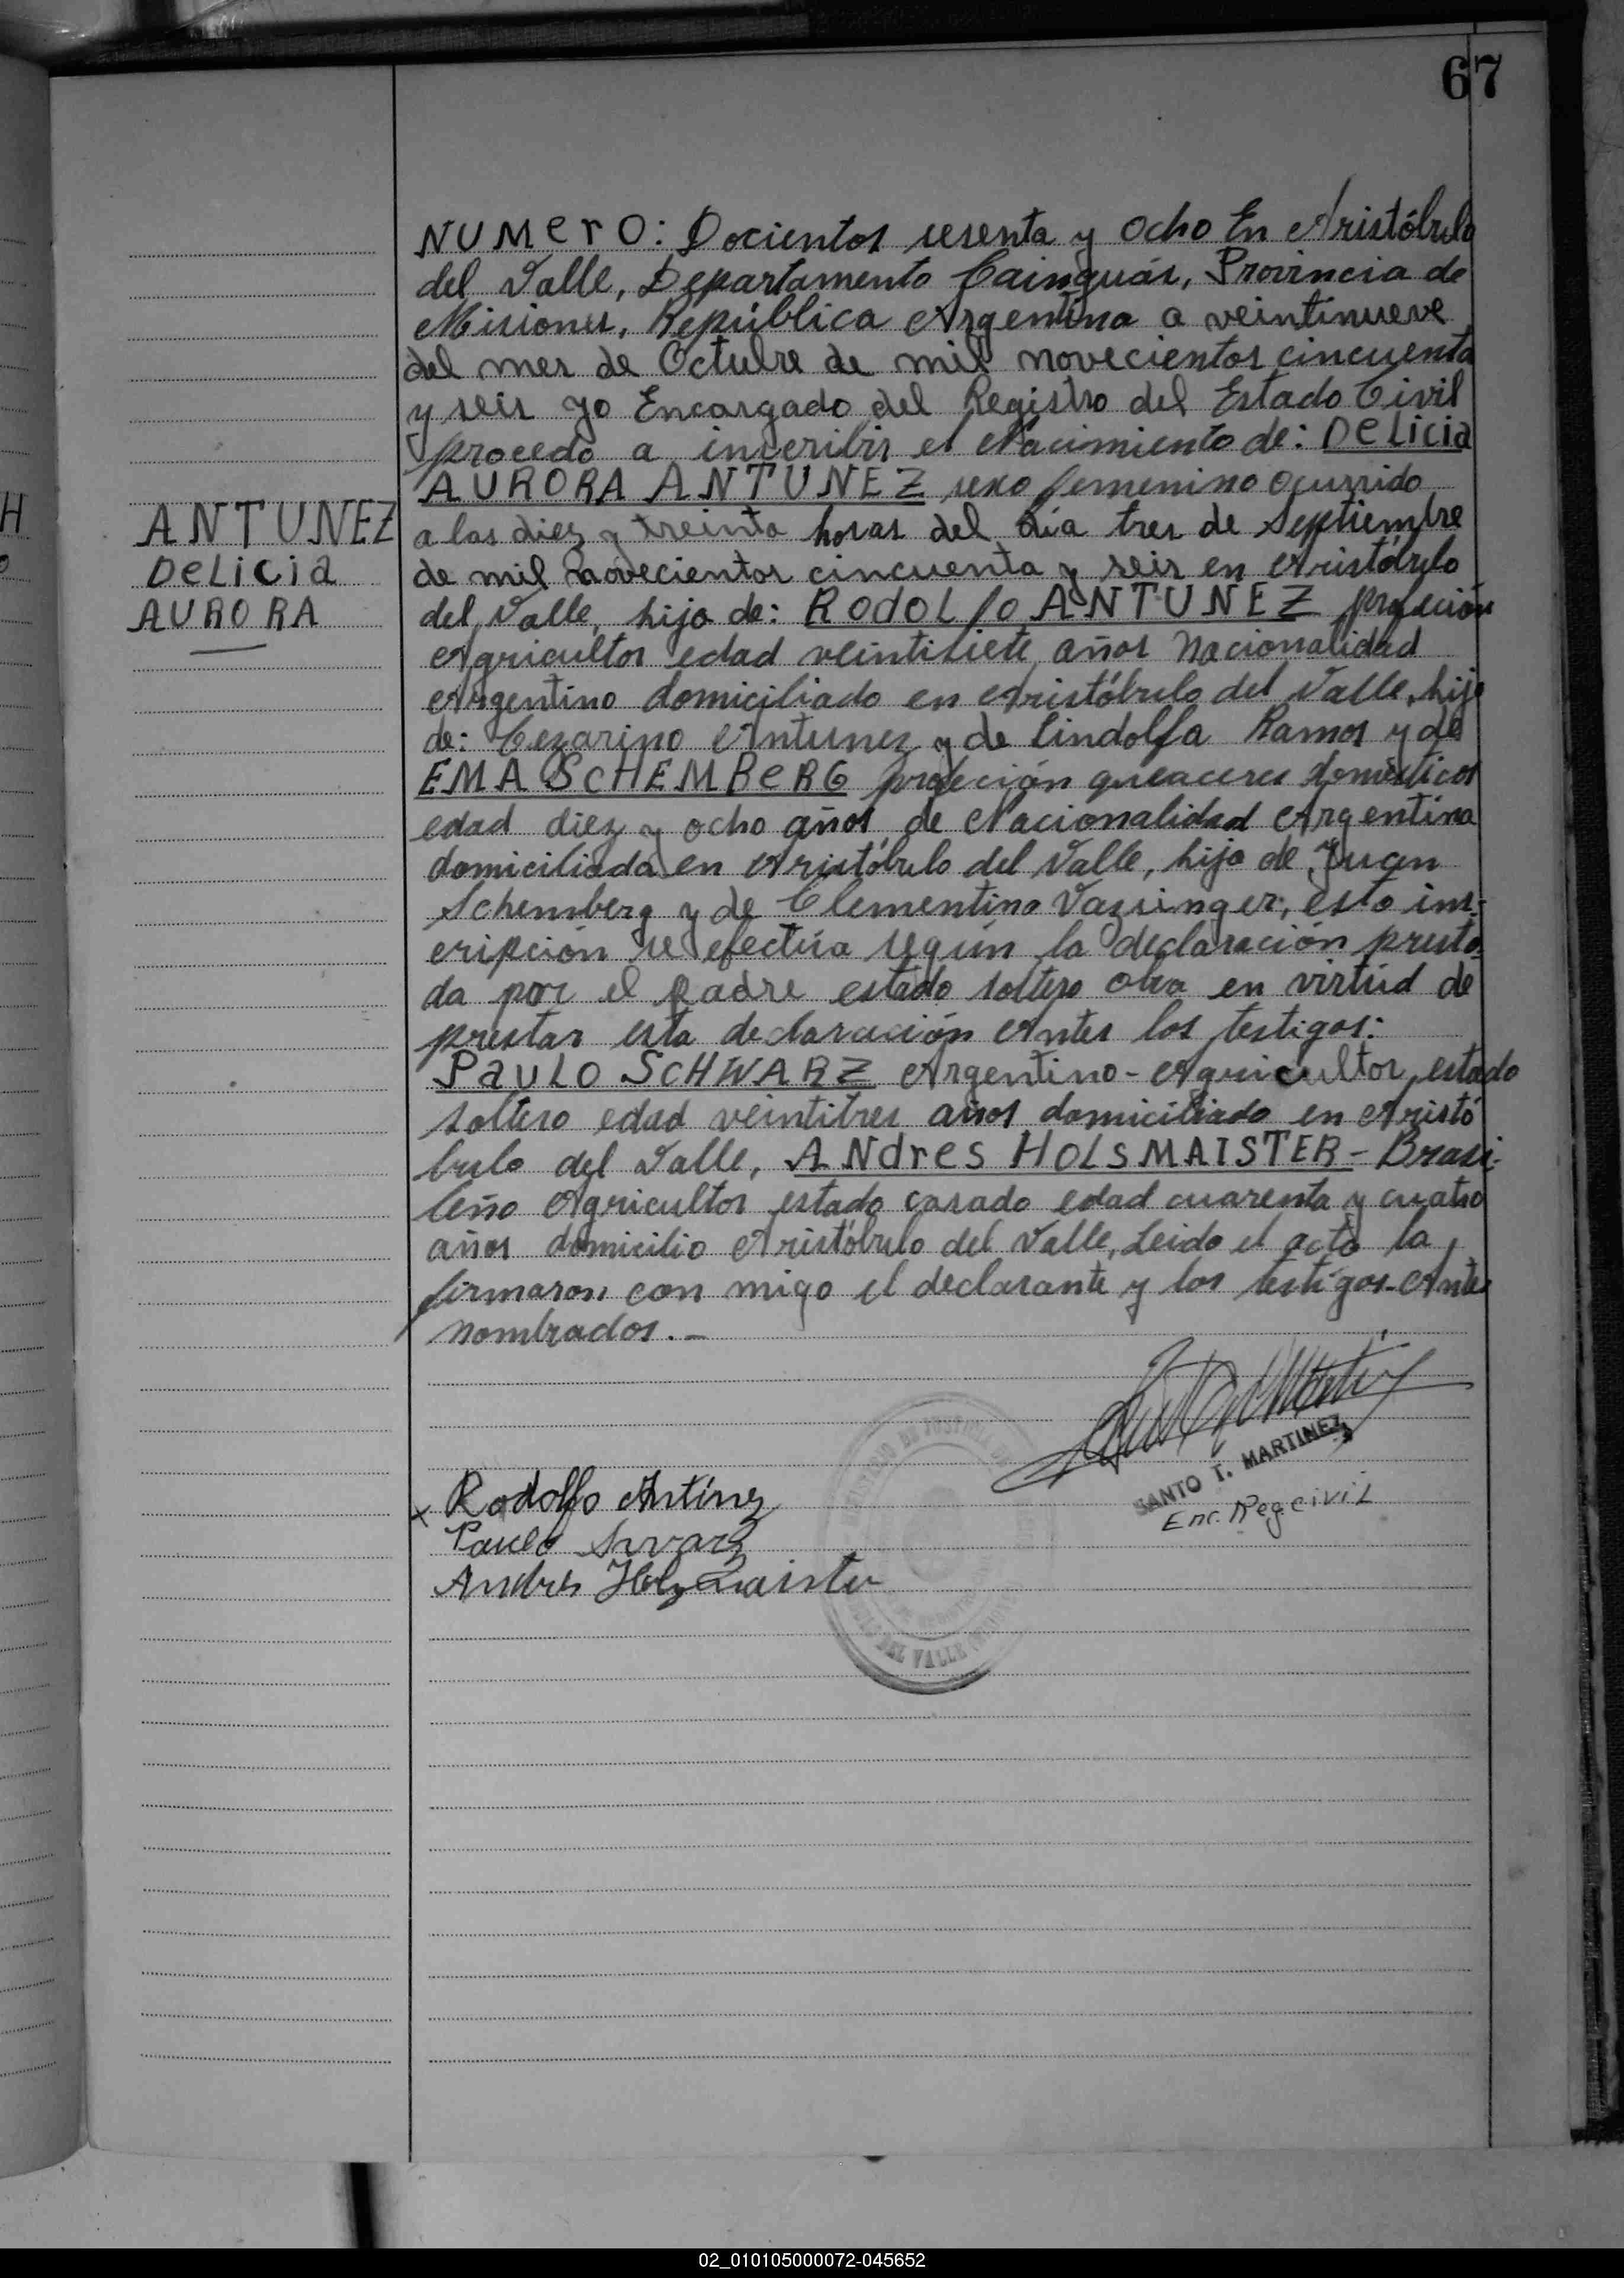 67
NUMERO: Docientos sesenta y ocho En Aristóbulo
del Valle, Departamento Cainguás, Provincia de
Misiones, República Argentina a veintinueve
del mes de Octubre de mil novecientos cincuenta
y seis yo Encargado del Registro del Estado Civil
procedo a inscribir el Nacimiento de: DELICIA
AURORA ANTUNEZ sexo femenino ocurrido
ANTUNEZ
DELICIA
AURORA
a las diez y treinta horas del día tres de Septiembre
de mil novecientos cincuenta y seis en Aristóbulo
del Valle, hija de: RODOLFO ANTUNEZ profeción
Agricultor edad veintisiete años Nacionalidad
Argentino domiciliado en Aristóbulo del Valle, hijo
de: Cezarino Antunez y de Lindolfa Ramos y de
EMA SCHEMBERG profeción queaceres domésticos
edad diez y ocho años de Nacionalidad Argentina
domiciliada en Aristóbulo del Valle, hija de Juan
Schemberg y de Clementina Vazsinger, esta ins-
cripción se efectúa según la declaración presta-
da por el padre estado soltero obra en virtúd de
prestar esta declaración Antes los testigos:
PAULO SCHWARZ Argentino - Agricultor, estado
soltero edad veintitres años domiciliado en Aristó
bulo del Valle, ANDRES HOLSMAISTER - Brasi-
leño Agricultor estado casado edad cuarenta y cuatro
años domicilio Aristóbulo del Valle, Leido el acta la
firmaron con migo el declarante y los testigos - Antes
nombrados. -
SANTO T. MARTINEZ
Enc. Reg. Civil
x Rodolfo Antúnez
Paulo Svarz
Andres Holzmaister
DEL VALLE
02_010105000072-045652